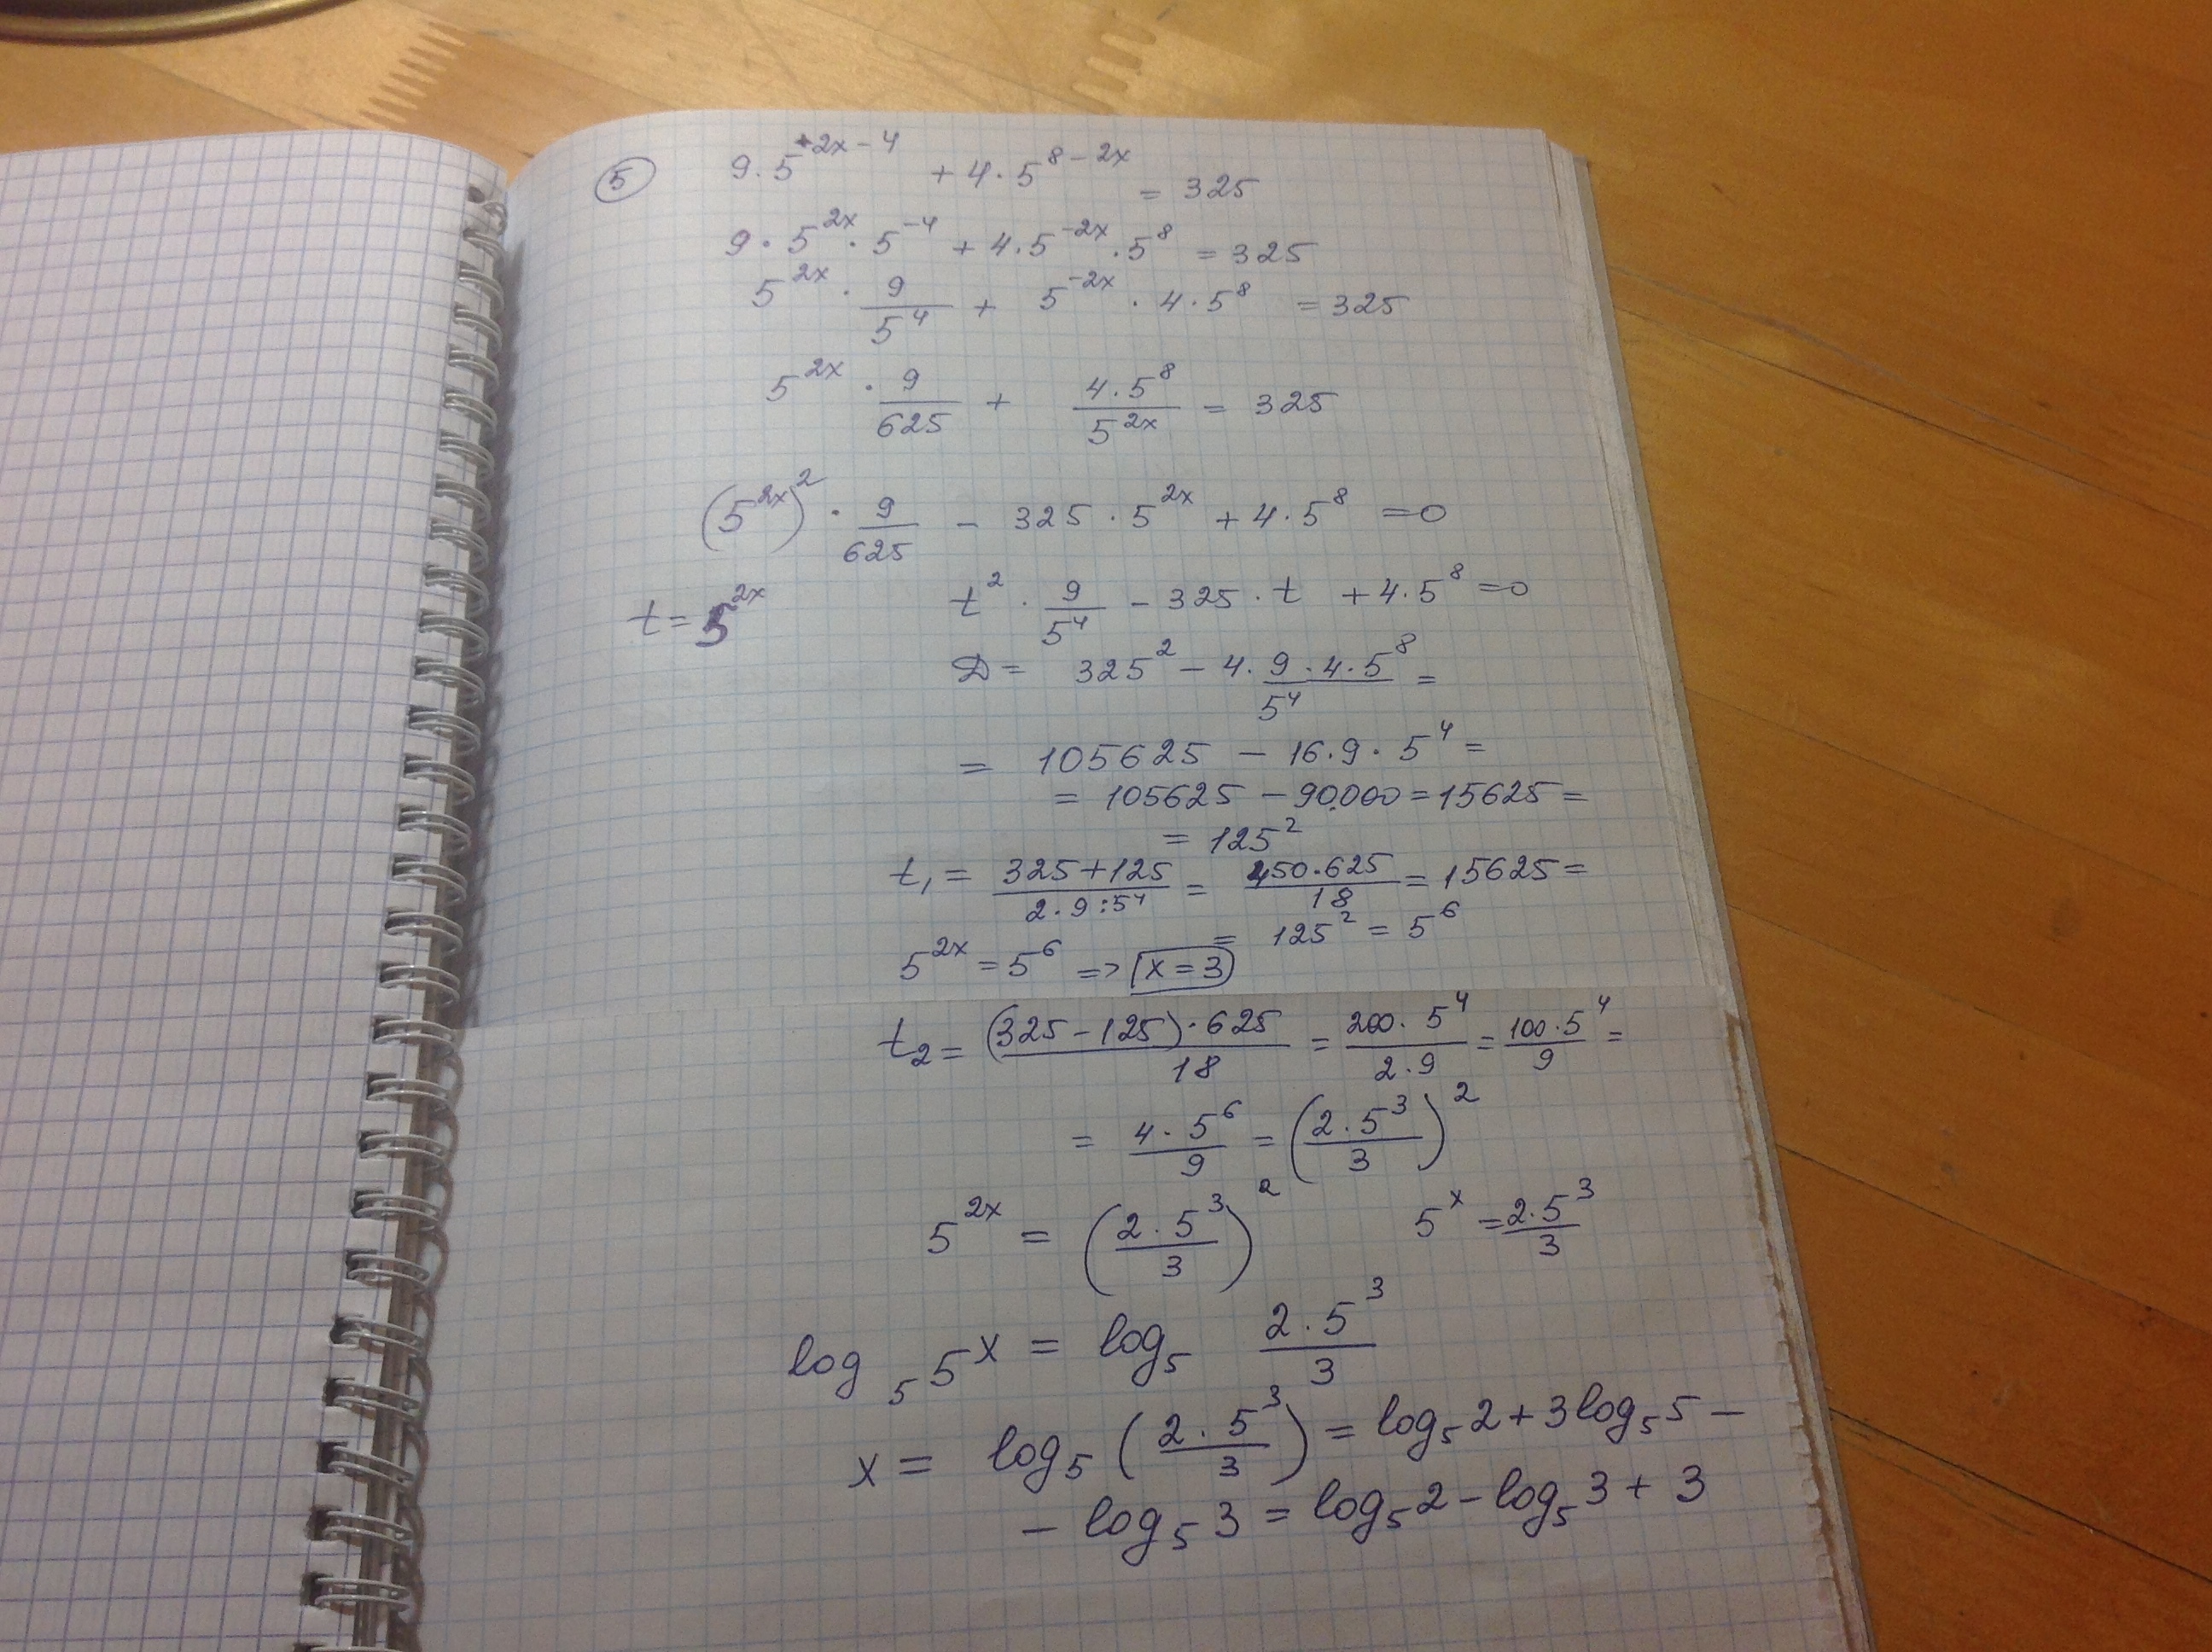 5
9·5^{2x-4} + 4·5^{8-2x} = 325
9·5^{2x}·5^{-4} + 4·5^{-2x}·5^{8} = 325
5^{2x}·\frac{9}{5^4} + 5^{-2x}·4·5^{8} = 325
5^{2x}·\frac{9}{625} + \frac{4·5^8}{5^{2x}} = 325
(5^{2x})^2·\frac{9}{625} - 325·5^{2x} + 4·5^8 = 0
t = 5^{2x} t^2·\frac{9}{5^4} - 325·t + 4·5^8 = 0
D = 325^2 - 4·\frac{9·4·5^8}{5^4} =
= 105625 - 16·9·5^4 =
= 105625 - 90000 = 15625 =
= 125^2
t_1 = \frac{325+125}{2·9:5^4} = \frac{450·625}{18} = 15625 =
= 125^2 = 5^6
5^{2x} = 5^6 => x = 3
t_2 = \frac{(325-125)·625}{18} = \frac{200·5^4}{2·9} = \frac{100·5^4}{9} =
= \frac{4·5^6}{9} = (\frac{2·5^3}{3})^2
5^{2x} = (\frac{2·5^3}{3})^2 5^x = \frac{2·5^3}{3}
log_5 5^x = log_5 \frac{2·5^3}{3}
x = log_5 (\frac{2·5^3}{3}) = log_5 2 + 3 log_5 5 -
- log_5 3 = log_5 2 - log_5 3 + 3